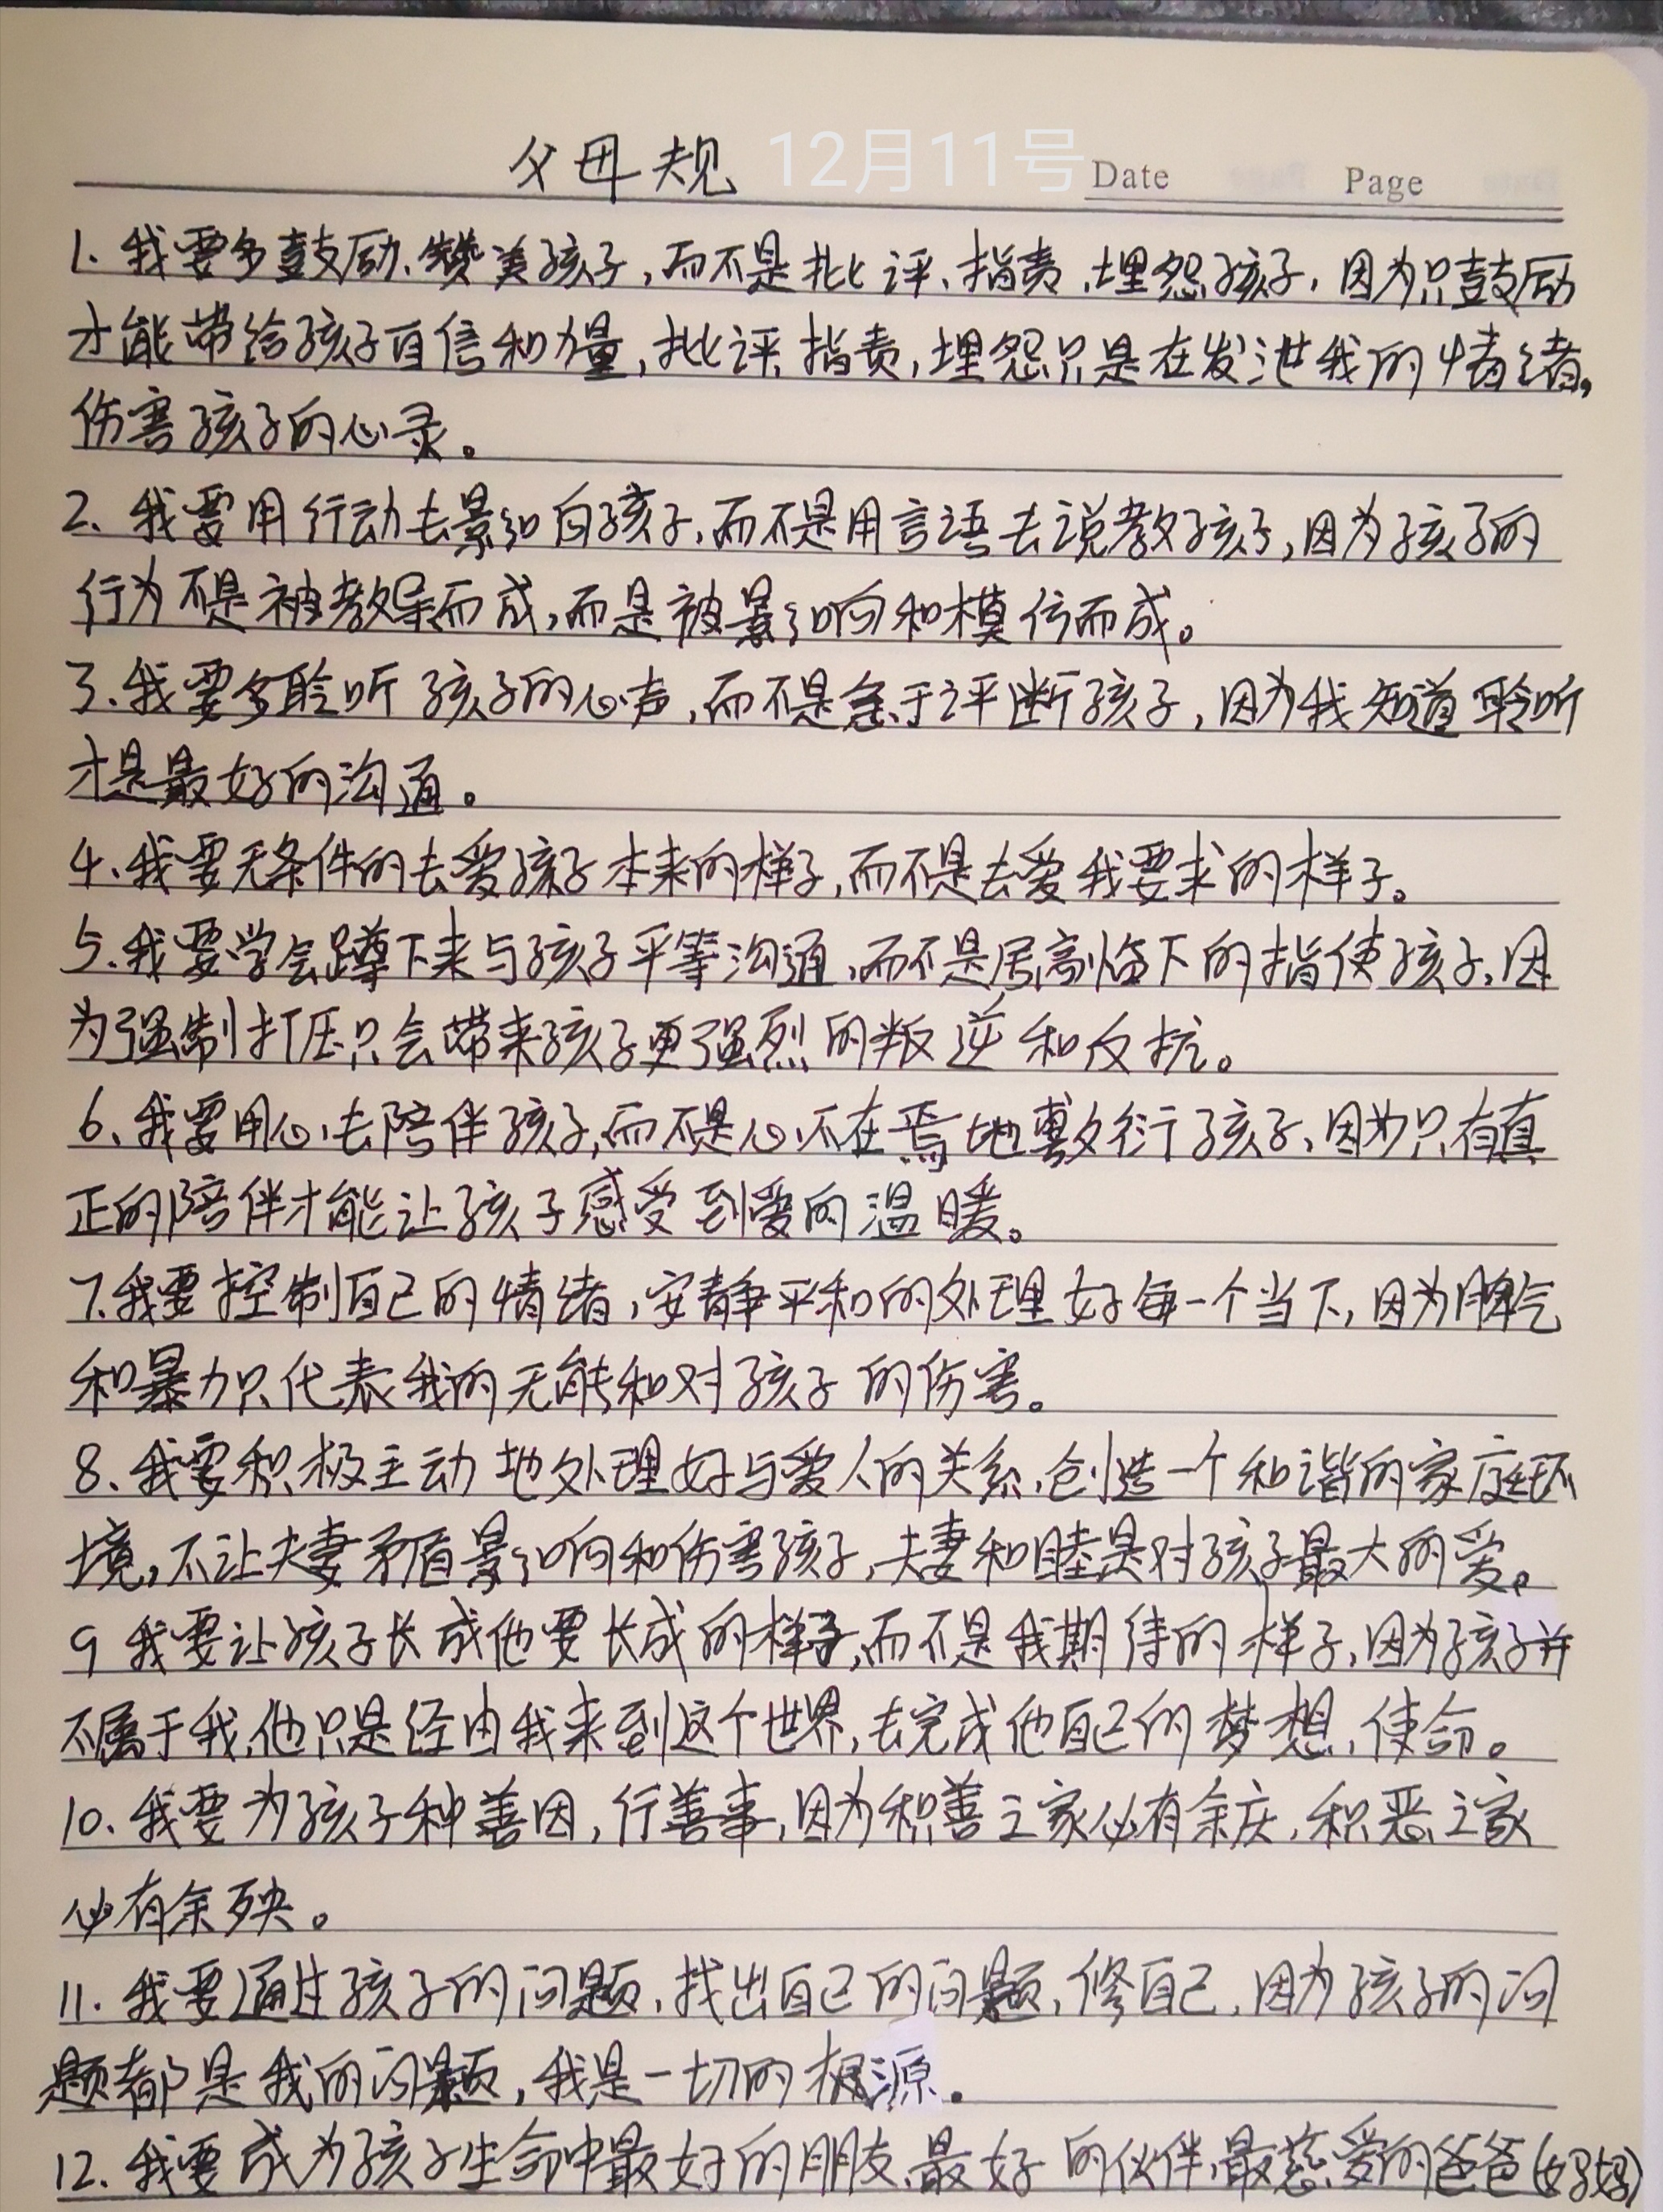 父母规 12月11号 Date Page
1、我要多鼓励、赞美孩子,而不是批评、指责、埋怨孩子,因为只鼓励
才能带给孩子自信和力量,批评、指责,埋怨只是在发泄我的情绪,
伤害孩子的心灵。
2、我要用行动去影响孩子,而不是用言语去说教孩子,因为孩子的
行为不是被教导而成,而是被影响和模仿而成。
3、我要多聆听孩子的心声,而不是急于评断孩子,因为我知道聆听
才是最好的沟通。
4、我要无条件的去爱孩子本来的样子,而不是去爱我要求的样子。
5、我要学会蹲下来与孩子平等沟通,而不是居高临下的指使孩子,因
为强制打压只会带来孩子更强烈的叛逆和反抗。
6、我要用心去陪伴孩子,而不是心不在焉地敷衍孩子,因为只有真
正的陪伴才能让孩子感受到爱的温暖。
7、我要控制自己的情绪,安静平和的处理好每一个当下,因为脾气
和暴力只代表我的无能和对孩子的伤害。
8、我要积极主动地处理好与爱人的关系,创造一个和谐的家庭环
境,不让夫妻矛盾影响和伤害孩子,夫妻和睦是对孩子最大的爱。
9 我要让孩子长成他要长成的样子,而不是我期待的样子,因为孩子并
不属于我,他只是经由我来到这个世界,去完成他自己的梦想、使命。
10、我要为孩子种善因,行善事,因为积善之家必有余庆,积恶之家
必有余殃。
11、我要通过孩子的问题,找出自己的问题,修自己,因为孩子的问
题都是我的问题,我是一切的根源。
12、我要成为孩子生命中最好的朋友、最好的伙伴、最慈爱的爸爸(妈妈)